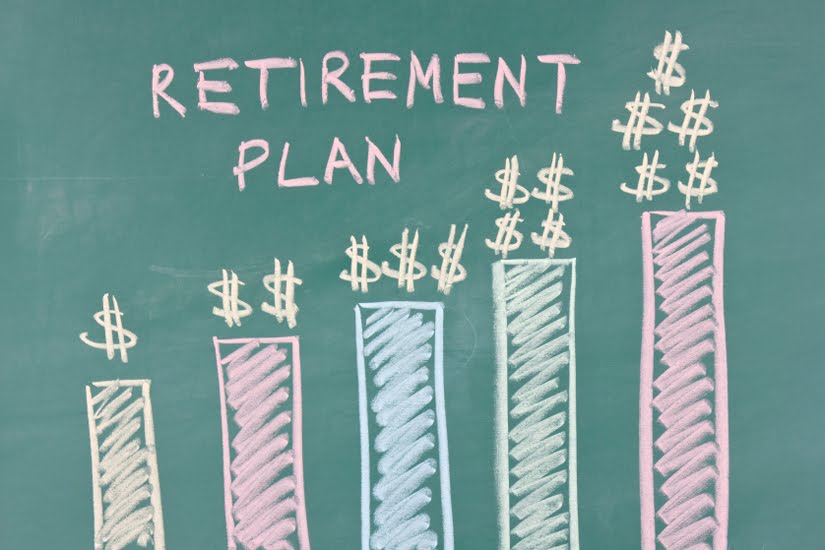 RETIREMENT
PLAN
$
$ $
$ $ $
$ $
$ $
$
$ $
$ $